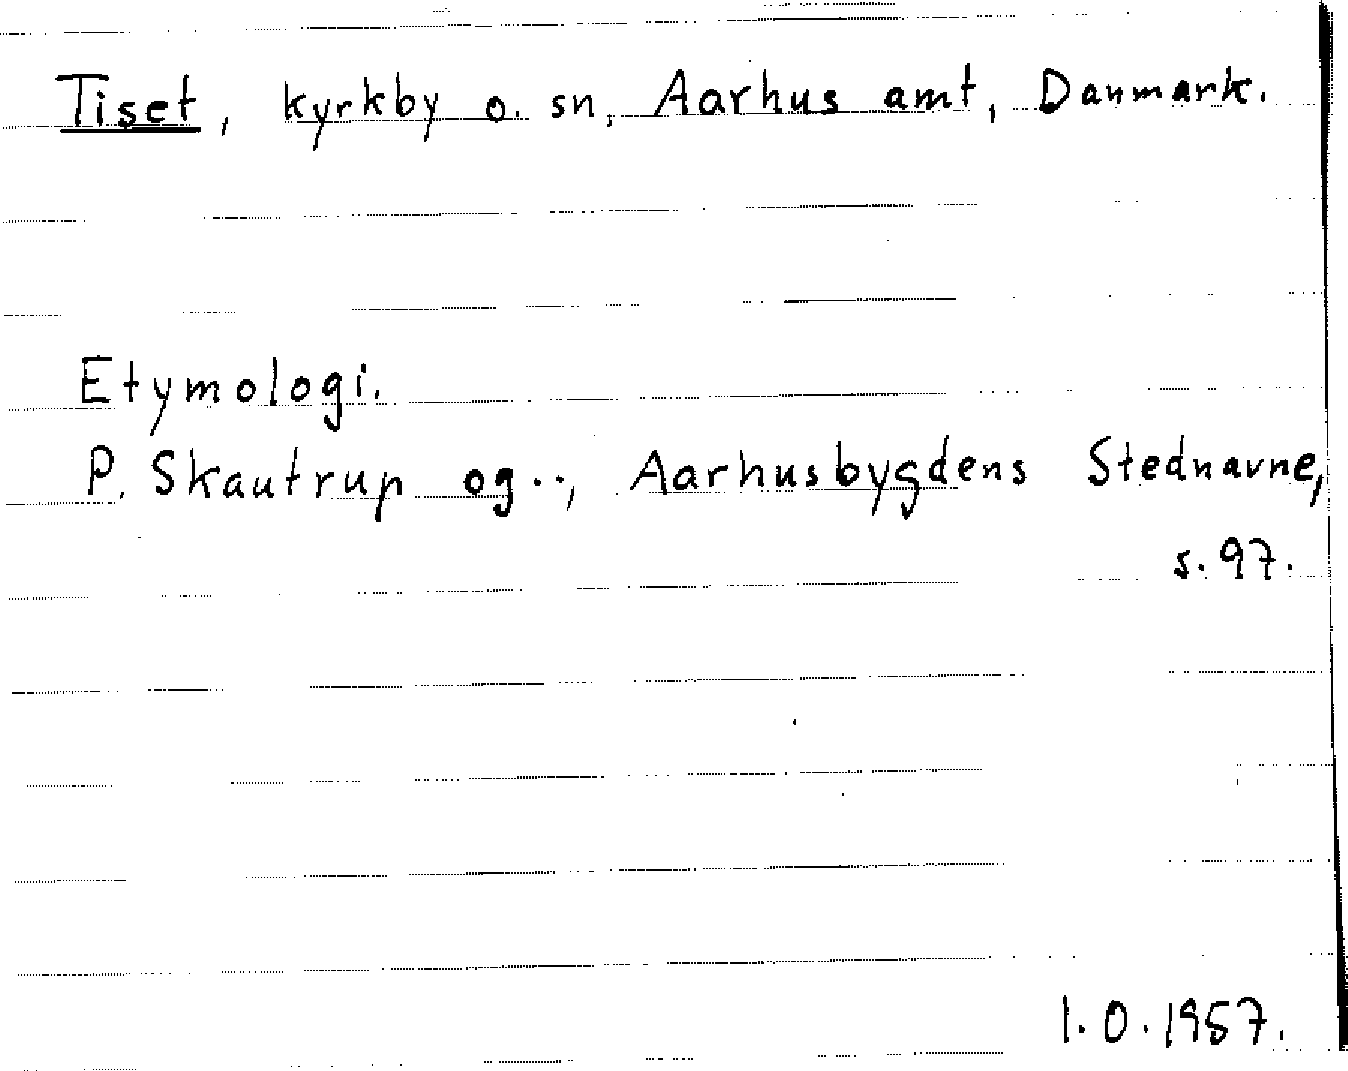 Tiset, kyrkby o. sn, Aarhus amt, Danmark.
Etymologi.
P. Skautrup og.., Aarhusbygdens Stednavne,
s. 97.
I.O.1957.